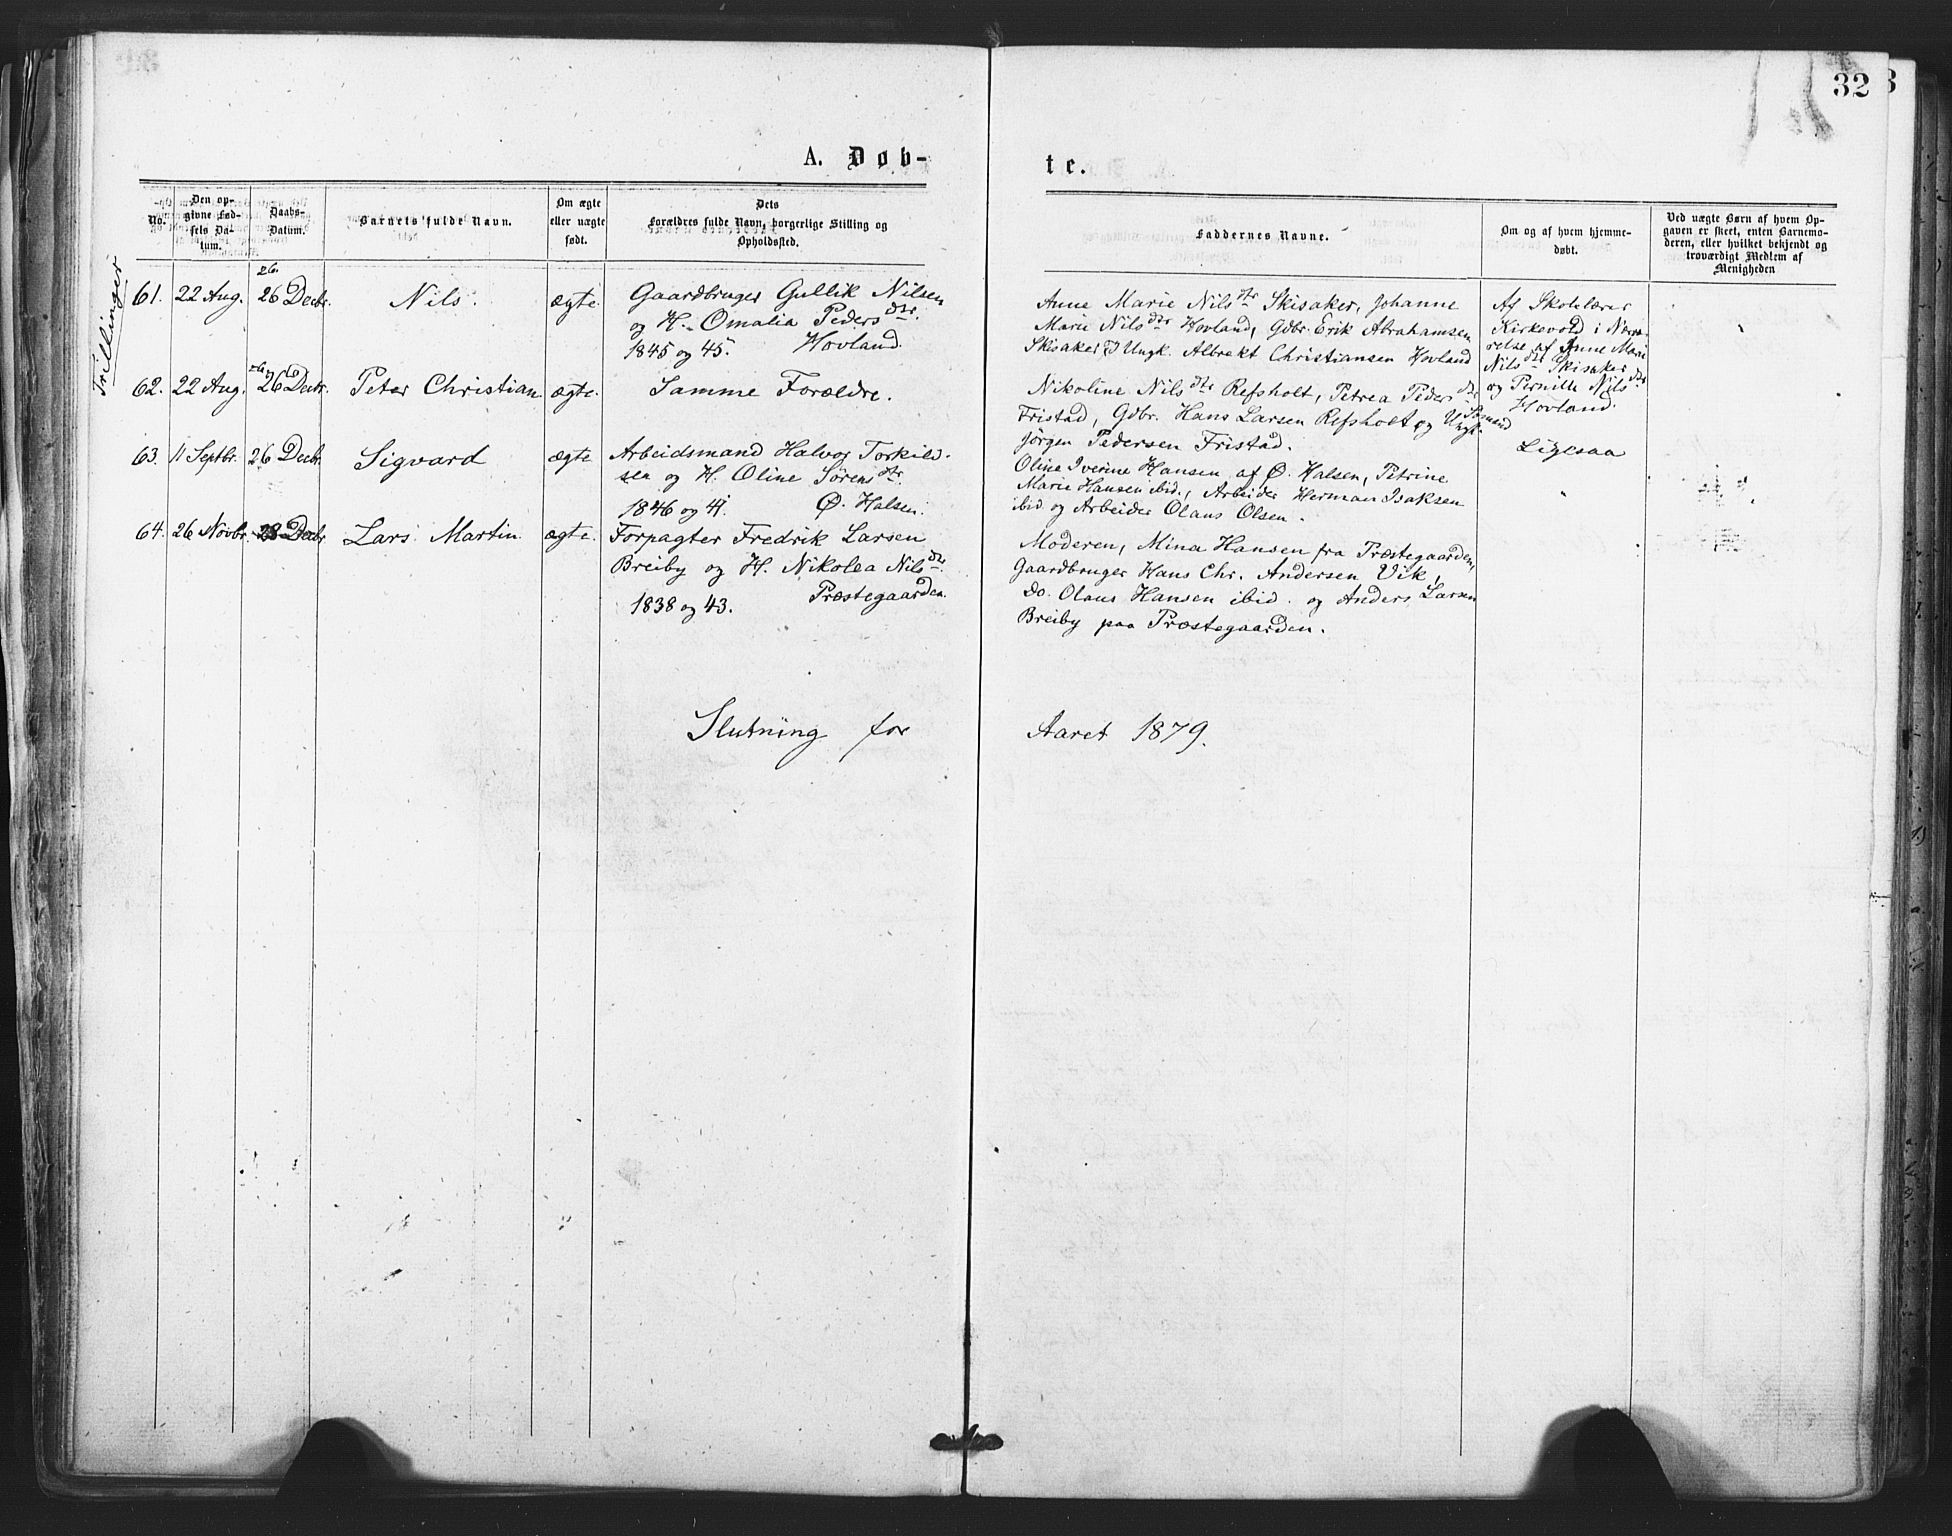 32
A. Døb-
te.
No.
Den op-
givne Fød-
sels Da-
tum.
Daabs-
Datum.
Barnets fulde Navn.
Om ægte
eller uægte
født.
Dets
Forældres fulde Navn, borgerlige Stilling og
Opholdssted.
Faddernes Navne.
Om og af hvem hjemme-
døbt.
Ved uægte Børn af hvem Op-
gaven er skeet, enten Barnemo-
deren, eller hvilket bekjendt og
troværdigt Medlem af
Menigheden
Trillinger
61. 22 Aug. 26 Decbr. Nils. ægte
Gaardbruger Gullik Nilsen
og H. Omalia Pedersdtr.
1845 og 45. Hovland.
Anne Marie Nilsdtr Skisaker, Johanne
Marie Nilsdtr Hovland, Gdbr. Erik Abrahamsen
Skisaker & Ungk. Albrekt Christiansen Hovland
Af Skolelærer
Kirkevold i Nærvæ-
relse af Anne Marie
Nilsdtr Skisaker
og Pernille Nilsdtr
Hovland.
62. 22 Aug. 26 Decbr. Peter Christian ægte.
Samme Forældre.
Nikoline Nilsdtr Refsholt, Petrea Pedersdtr
Fristad, Gdbr. Hans Larsen Refsholt og Ungk. Sømand
Jørgen Pedersen Fristad.
Ligesaa
63. 11 Septbr. 26 Decbr. Sigvard ægte
Arbeidsmand Halvor Torkild-
sen og H. Oline Sørensdtr.
1846 og 41. Ø. Halsen.
Oline Iverine Hansen af Ø. Halsen, Petrine
Marie Hansen ibid., Arbeider Herman Isaksen
ibid. og Arbeider Olaus Olsen.
"
64. 26 Novbr. 28 Decbr. Lars Martin ægte.
Forpagter Fredrik Larsen
Breiby og H. Nikolea Nilsdtr.
1838 og 43. Præstegaarden.
Moderen, Mina Hansen fra Præstegaarden,
Gaardbruger Hans Chr. Andersen Vik,
Do. Olaus Hansen ibid. og Anders Larsen
Breiby paa Præstegaarden.
Slutning for Aaret 1879.